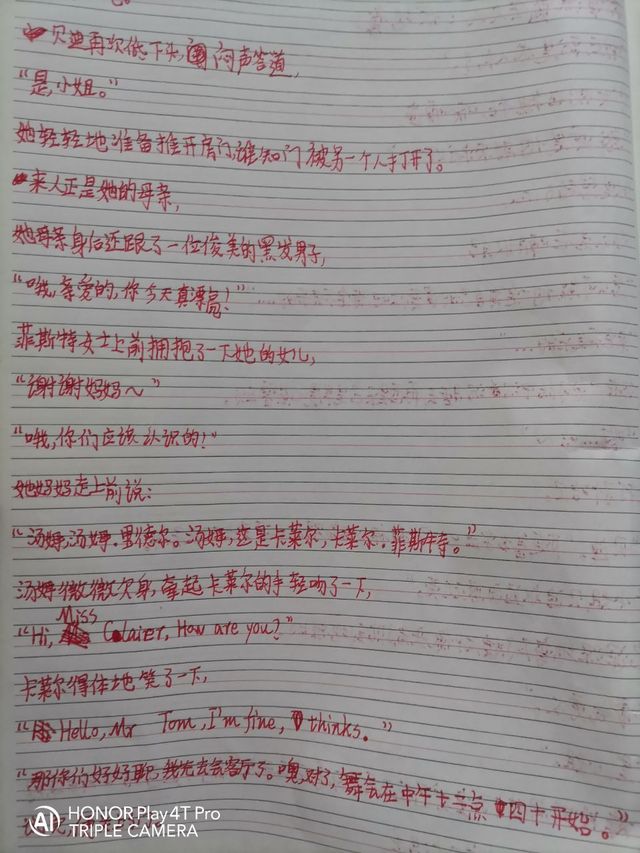 贝迪再次低下头,闷声答道,
“是,小姐。”
她轻轻地准备推开房门,谁知门被另一个人打开了。
来人正是她的母亲,
她母亲身后还跟了一位俊美的黑发男子,
“哦,亲爱的,你今天真漂亮!”
菲斯特女士上前拥抱了一下她的女儿,
“谢谢妈妈~”
“哦,你们应该认识的!”
她妈妈走上前说:
“汤姆,汤姆·里德尔。汤姆,这是卡莱尔,卡莱尔·菲斯特。”
汤姆微微欠身,拿起卡莱尔的手轻吻了一下,
“Hi, Miss Colaier, How are you?”
卡莱尔得体地笑了一下,
“Hello, Mr Tom, I'm fine, thinks.”
“那你们好好聊,我先去会客厅了。噢,对了,舞会在中午十二点四十开始。”
HONOR Play4T Pro
AI TRIPLE CAMERA